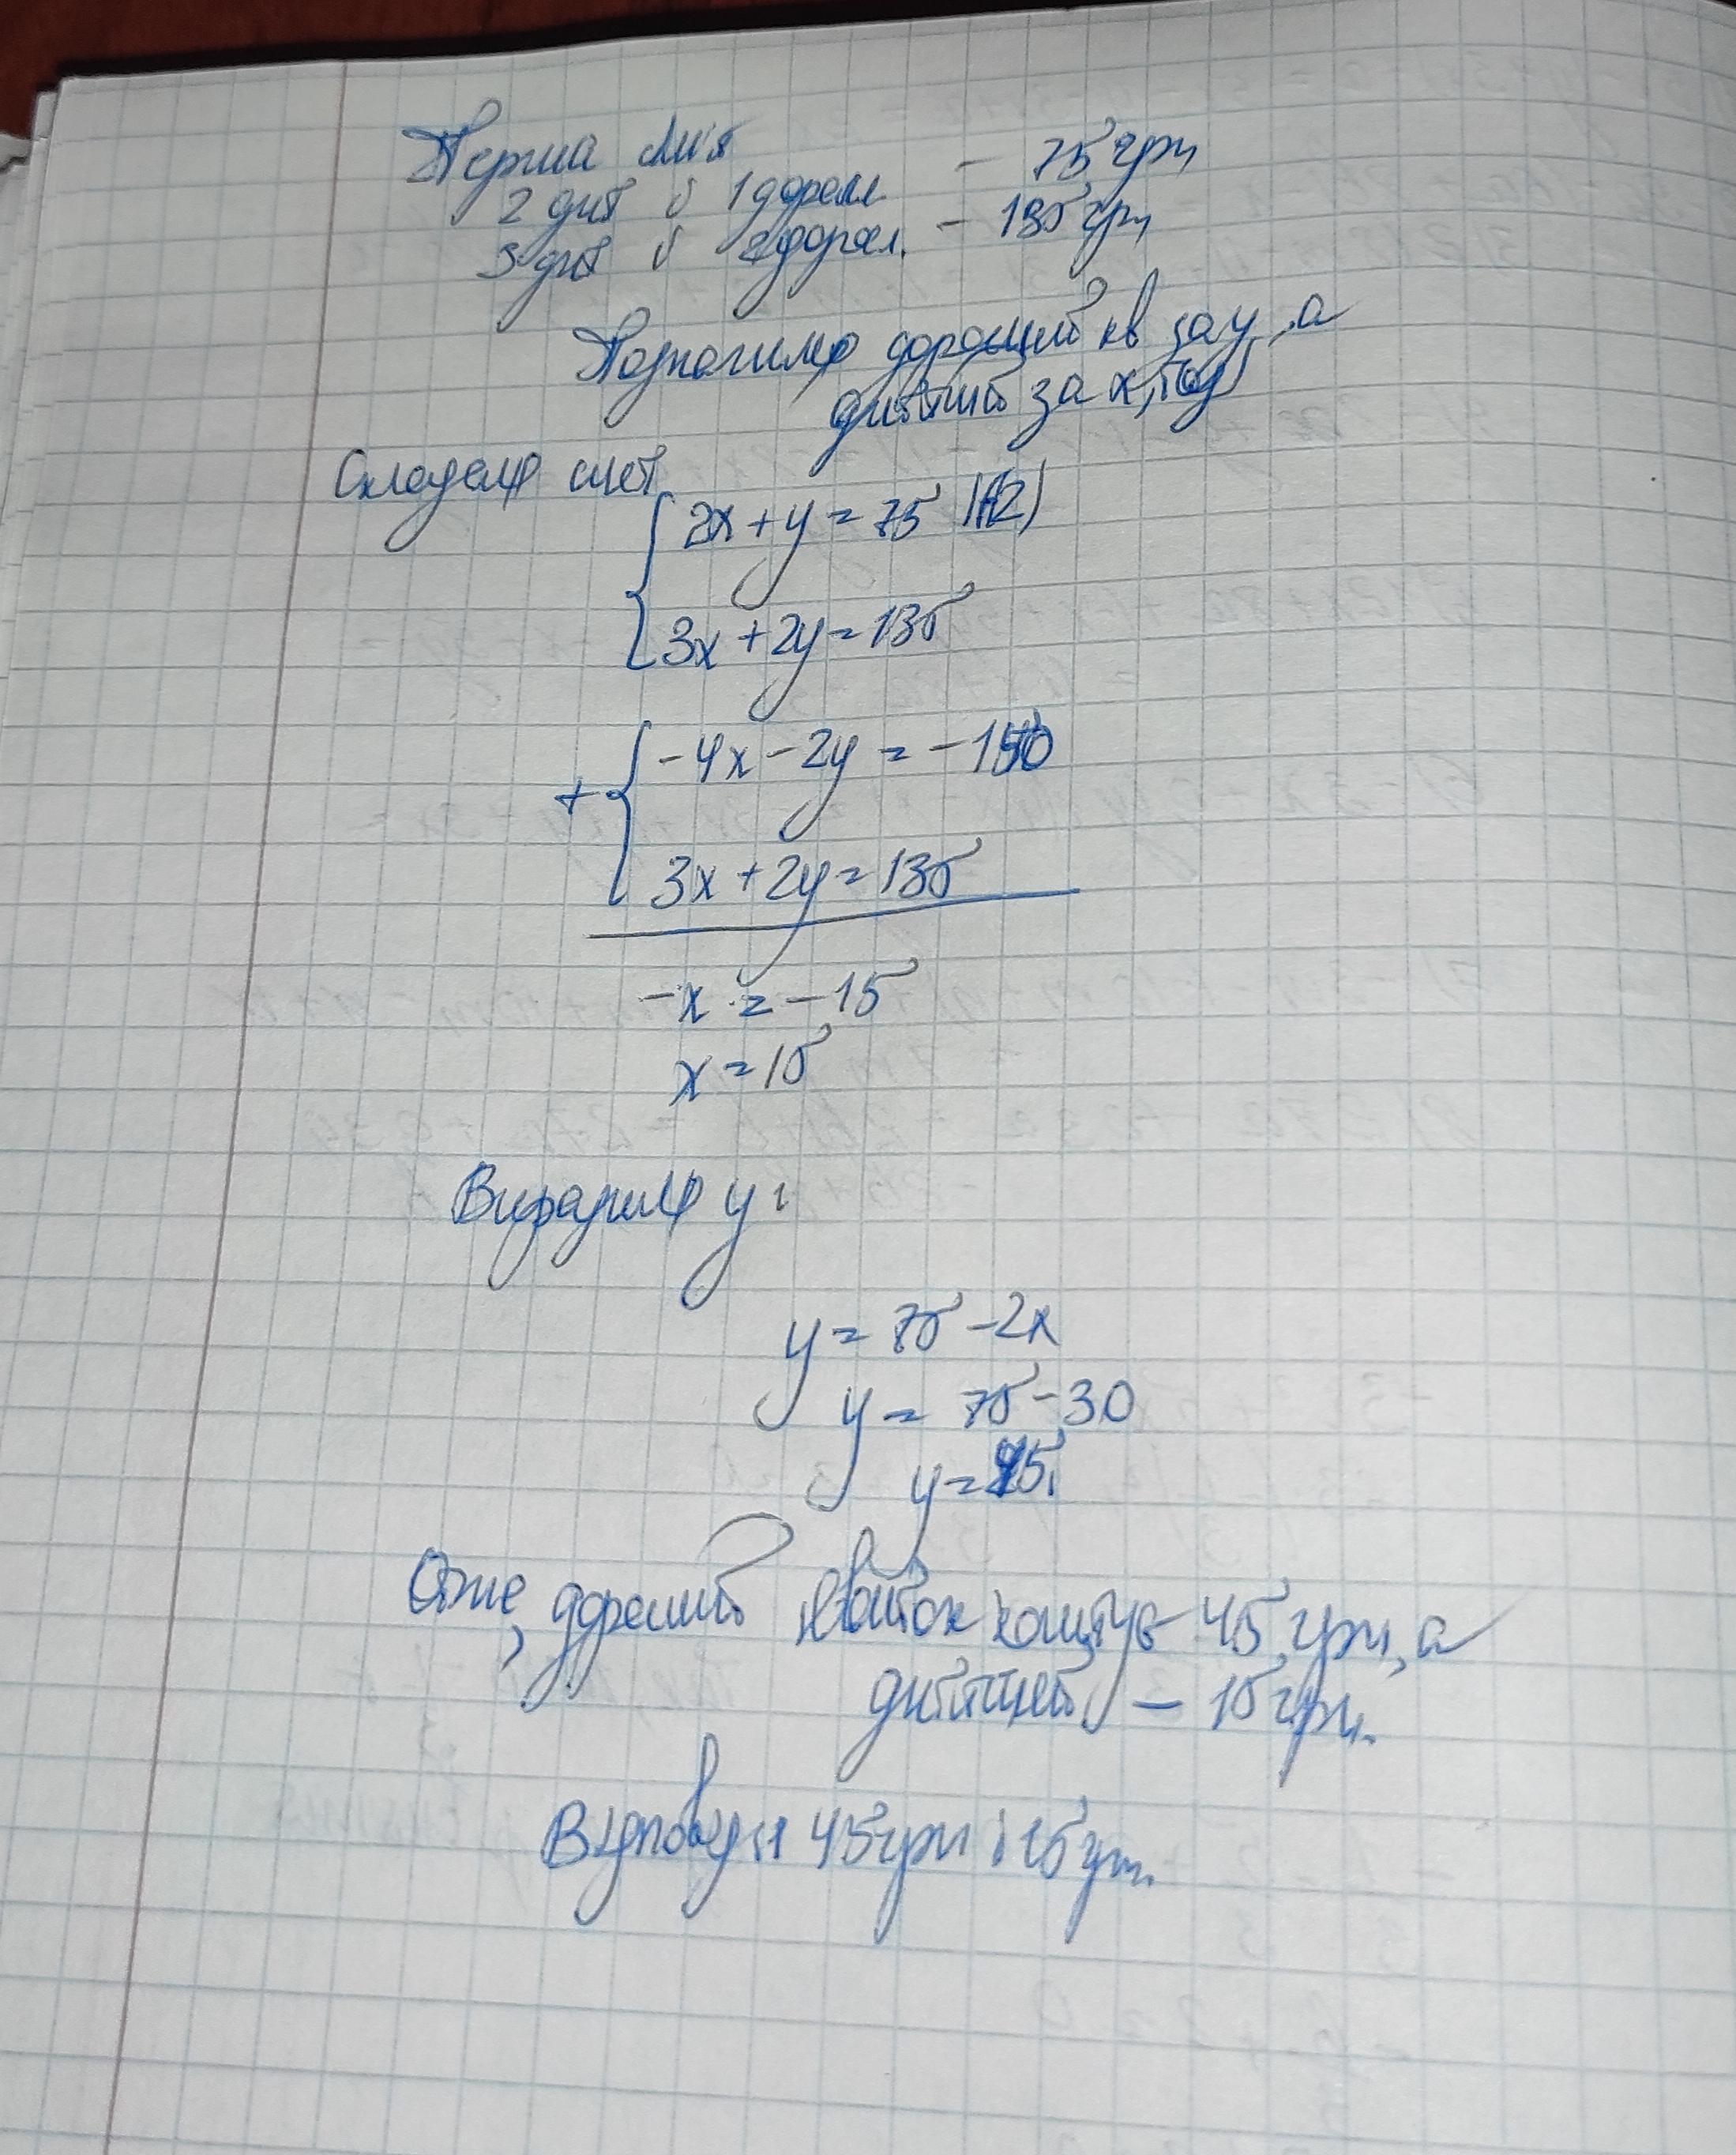 Перша сім'я
2 дит і 1 доросл. - 75 грн
3 дит і 2 доросл. - 135 грн
Позначимо дорослий кв за y, а
дитячий за x, тоді
Складемо сист
2x + y = 75 |(-2)
3x + 2y = 135
+ -4x - 2y = -150
3x + 2y = 135
-x = -15
x = 15
Виразимо y:
y = 75 - 2x
y = 75 - 30
y = 45
Отже, дорослий квиток коштує 45 грн, а
дитячий - 15 грн.
Відповідь 45 грн і 15 грн.